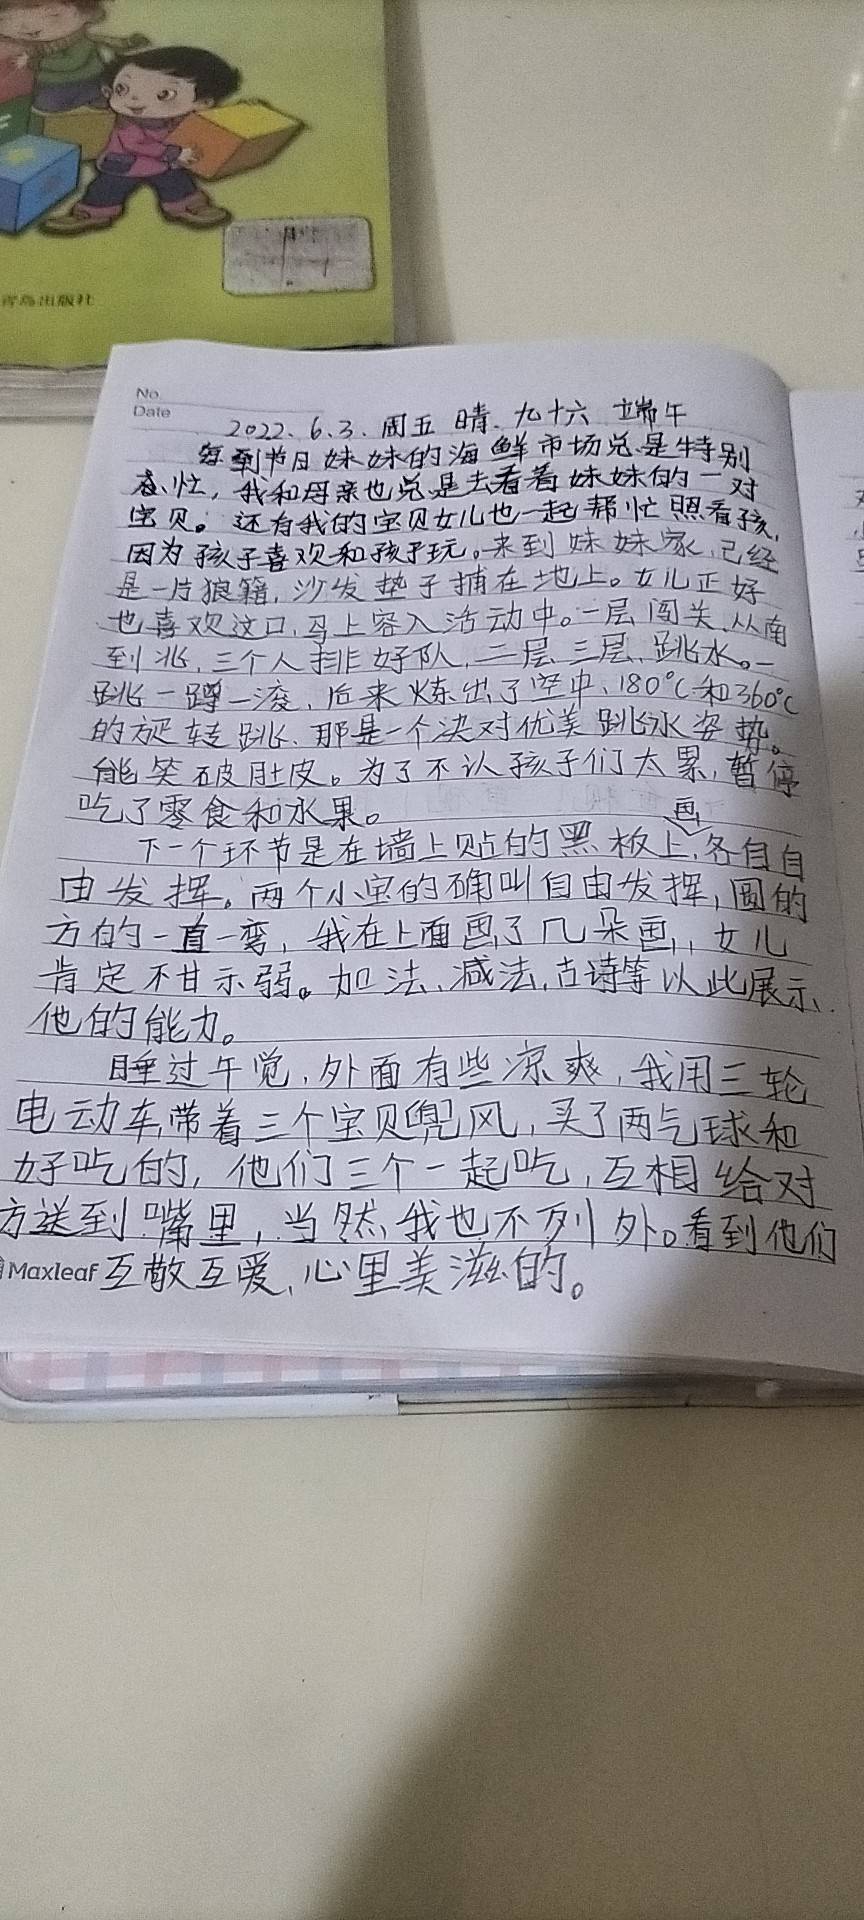 青岛出版社
No.
Date
2022.6.3.周五 晴.九十六 端午
每到节日妹妹的海鲜市场总是特别
忙，我和母亲也总是去看着妹妹的一对
宝贝。还有我的宝贝女儿也一起帮忙照看孩,
因为孩子喜欢和孩子玩。来到妹妹家,已经
是一片狼籍,沙发垫子捕在地上。女儿正好
也喜欢这口,马上容入活动中。一层闯关、从南
到北,三个人排好队,二层三层、跳水。一
跳一蹲一滚,后来炼出了空中、180℃和360℃
的旋转跳.那是一个决对优美跳水姿势。
能笑破肚皮。为了不认孩子们太累,暂停
吃了零食和水果。
画
下一个环节是在墙上贴的黑板上,各自自
由发挥。两个小宝的确叫自由发挥,圆的
方的一直一弯,我在上面画了几朵画,,女儿
肯定不甘示弱。加法、减法,古诗等以此展示
他的能力。
睡过午觉,外面有些凉爽,我用三轮
电动车,带着三个宝贝兜风,买了两气球和
好吃的,他们三个一起吃,互相给对
方送到嘴里,当然,我也不列外。看到他们
Maxleaf 互敬互爱,心里美滋的。